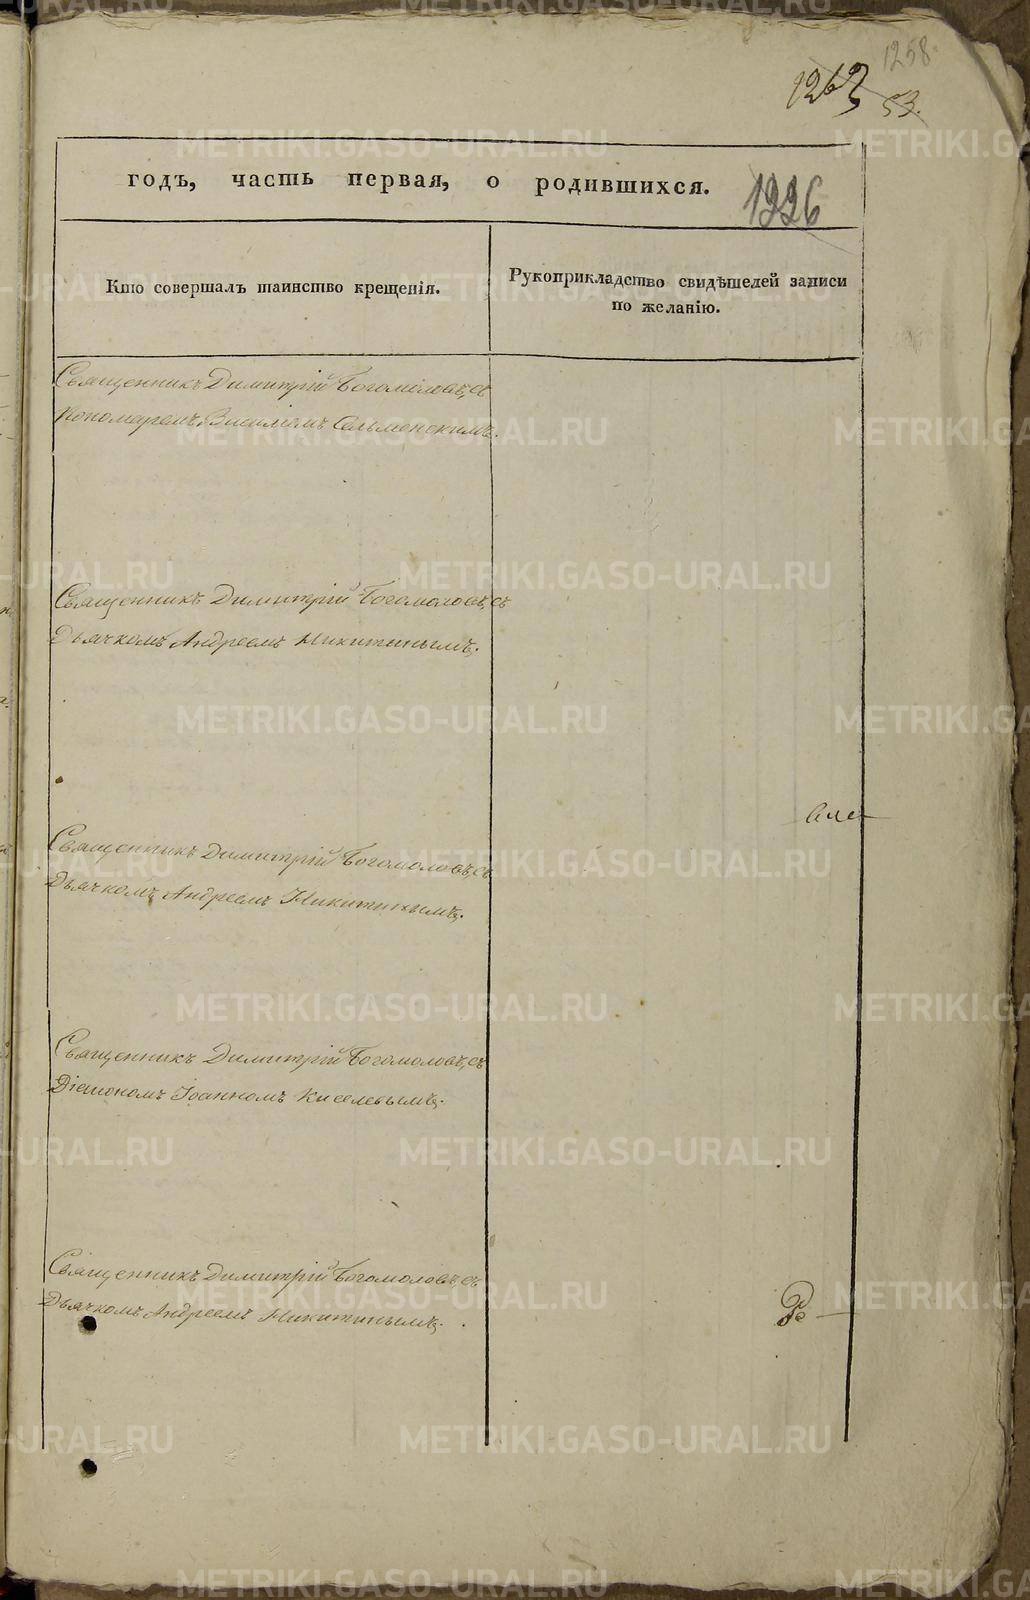 1258
1263
53.
годъ, часть первая, о родившихся.
1226
Кто совершалъ таинство крещенія.
Рукоприкладство свидѣтелей записи
по желанію.
Священникъ Димитрій Богомоловъ, съ
пономаремъ Василіемъ Сельменскимъ.
Священникъ Димитрій Богомоловъ, съ
Дьячкомъ Андреемъ Никитинымъ.
Священникъ Димитрій Богомоловъ, съ
Дьячкомъ Андреемъ Никитинымъ.
Священникъ Димитрій Богомоловъ, съ
Діакономъ Іоанномъ Киселевымъ.
Священникъ Димитрій Богомоловъ, съ
Дьячкомъ Андреемъ Никитинымъ.
METRIKI.GASO-URAL.RU